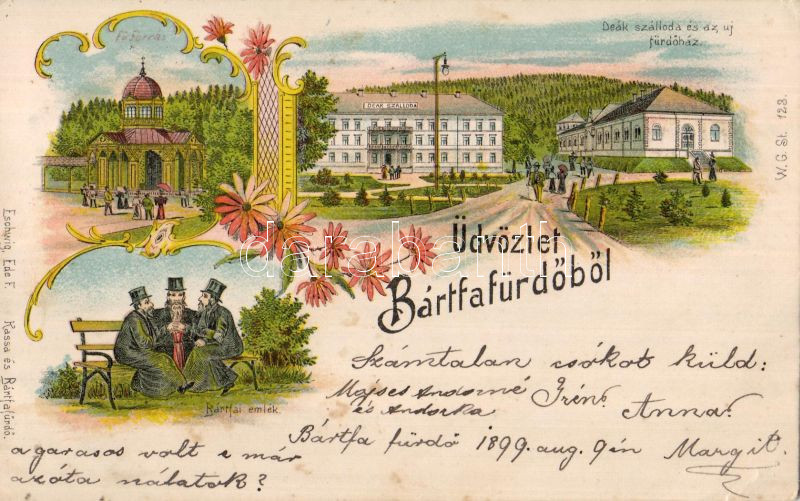 Fő forrás
Deák szálloda és az uj
fürdőház.
DEÁK SZÁLLODA
W. G. St. 123.
Üdvözlet
Bártfafürdőből
Eschwig, Ede F. Kassa és Bártfafürdő.
Bártfai emlék.
Számtalan csókot küld:
Mojses Andorné
és Andorka
Irén
Anna
Bártfa fürdő 1899. aug. 9én
Margit.
a garasos volt e már
azóta nálatok?
darabanth